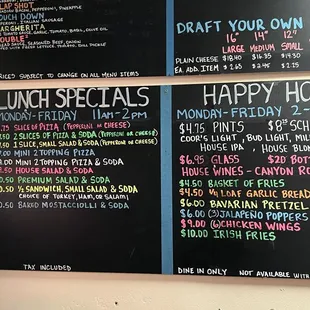 LAP SHOT
BACON, PEPPERONI, PINEAPPLE
TOUCH DOWN
PEPPERONI, ITALIAN SAUSAGE
MARGHERITA
TOMATO, GARLIC, BASIL, OLIVE OIL
DOUBLE"
SEASONED BEEF, ONION
DILL PICKLE
SUBJECT TO CHANGE ON ALL MENU ITEMS
DRAFT YOUR OWN
16" 14" 12"
LARGE MEDIUM SMALL
PLAIN CHEESE $18.40 $16.35 $14.30
EA. ADD. ITEM $2.65 $2.45 $2.25
LUNCH SPECIALS
MONDAY-FRIDAY 11AM-2PM
.75 SLICES OF PIZZA (PEPPERONI OR CHEESE)
2 SLICES OF PIZZA & SODA (PEPPERONI OR CHEESE)
1 SLICE, SMALL SALAD & SODA (PEPPERONI OR CHEESE)
MINI 2 TOPPING PIZZA
MINI 2 TOPPING PIZZA & SODA
HOUSE SALAD & SODA
.50 PREMIUM SALAD & SODA
.50 ½ SANDWICH, SMALL SALAD & SODA
CHOICE OF TURKEY, HAM, OR SALAMI
.50 BAKED MOSTACCIOLI & SODA
TAX INCLUDED
HAPPY HO
MONDAY-FRIDAY 2-
$4.75 PINTS $8.75 SCH
COOR'S LIGHT, BUD LIGHT, MIL
HOUSE IPA, HOUSE BLON
$6.95 GLASS $20 BOTT
HOUSE WINES - CANYON RO
$4.50 BASKET OF FRIES
$4.50 1/2 LOAF GARLIC BREAD
$6.00 BAVARIAN PRETZEL
$6.00 (3) JALAPEÑO POPPERS
$9.00 (6) CHICKEN WINGS
$10.00 IRISH FRIES
DINE IN ONLY NOT AVAILABLE WITH